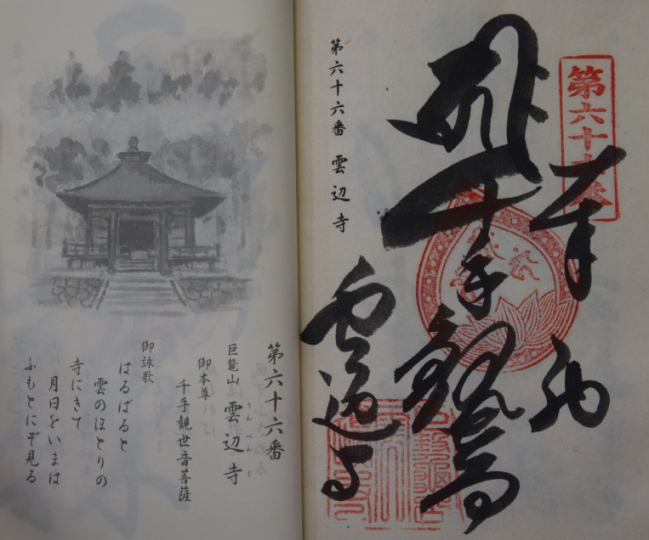 第六十六番
奉納
千手観音
雲辺寺
第六十六番 雲辺寺
第六十六番
巨鼇山 雲辺寺
うんぺんじ
御本尊
千手観世音菩薩
御詠歌
はるばると
雲のほとりの
寺にきて
月日をいまは
ふもとにぞ見る